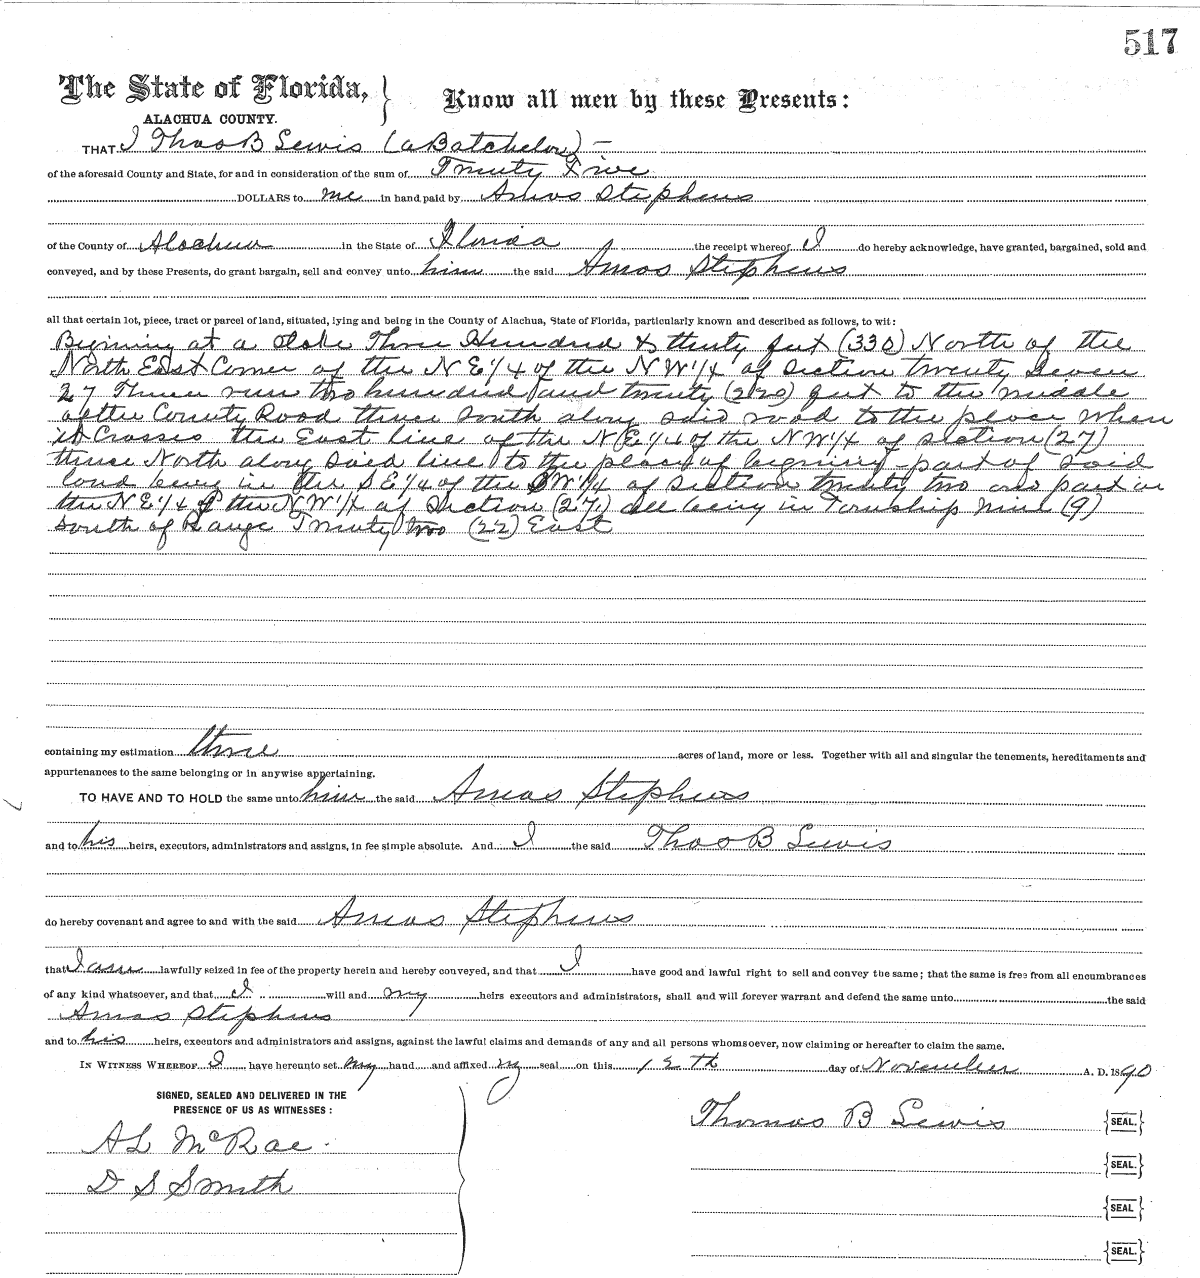 517
The State of Florida, } Know all men by these Presents:
ALACHUA COUNTY.
THAT I Thos B Lewis (a Batchelor) —
of the aforesaid County and State, for and in consideration of the sum of Twenty Five
DOLLARS to me in hand paid by Amos Stephens
of the County of Alachua in the State of Florida the receipt whereof I do hereby acknowledge, have granted, bargained, sold and
conveyed, and by these Presents, do grant bargain, sell and convey unto him the said Amos Stephens
all that certain lot, piece, tract or parcel of land, situated, lying and being in the County of Alachua, State of Florida, particularly known and described as follows, to wit:
Begining at a Stake Three Hundred & thirty feet (330) North of the
North East Corner of the N E 1/4 of the N W 1/4 of Section twenty Seven
27 Thence run two hundred and twenty (220) feet to the middle
of the County Road thence South along said road to the place where
it Crosses the East line of the N E 1/4 of the N W 1/4 of Section (27)
thence North along said line to the place of begining part of said
land being in the S E 1/4 of the S W 1/4 of Section twenty two and part in
the N E 1/4 of the N W 1/4 of Section (27.) all being in Township nine (9)
South of Range Twenty two (22) East
containing my estimation three acres of land, more or less. Together with all and singular the tenements, hereditaments and
appurtenances to the same belonging or in anywise appertaining.
TO HAVE AND TO HOLD the same unto him the said Amos Stephens
and to his heirs, executors, administrators and assigns, in fee simple absolute. And I the said Thos B Lewis
do hereby covenant and agree to and with the said Amos Stephens
that I am lawfully seized in fee of the property herein and hereby conveyed, and that I have good and lawful right to sell and convey the same; that the same is free from all encumbrances
of any kind whatsoever, and that I will and my heirs executors and administrators, shall and will forever warrant and defend the same unto the said
Amos Stephens
and to his heirs, executors and administrators and assigns, against the lawful claims and demands of any and all persons whomsoever, now claiming or hereafter to claim the same.
IN WITNESS WHEREOF I have hereunto set my hand and affixed my seal on this 12th day of November A. D. 1890
SIGNED, SEALED AND DELIVERED IN THE
PRESENCE OF US AS WITNESSES:
Thomas B Lewis {SEAL.}
A L McRae
{SEAL.}
D S Smith
{SEAL}
{SEAL.}